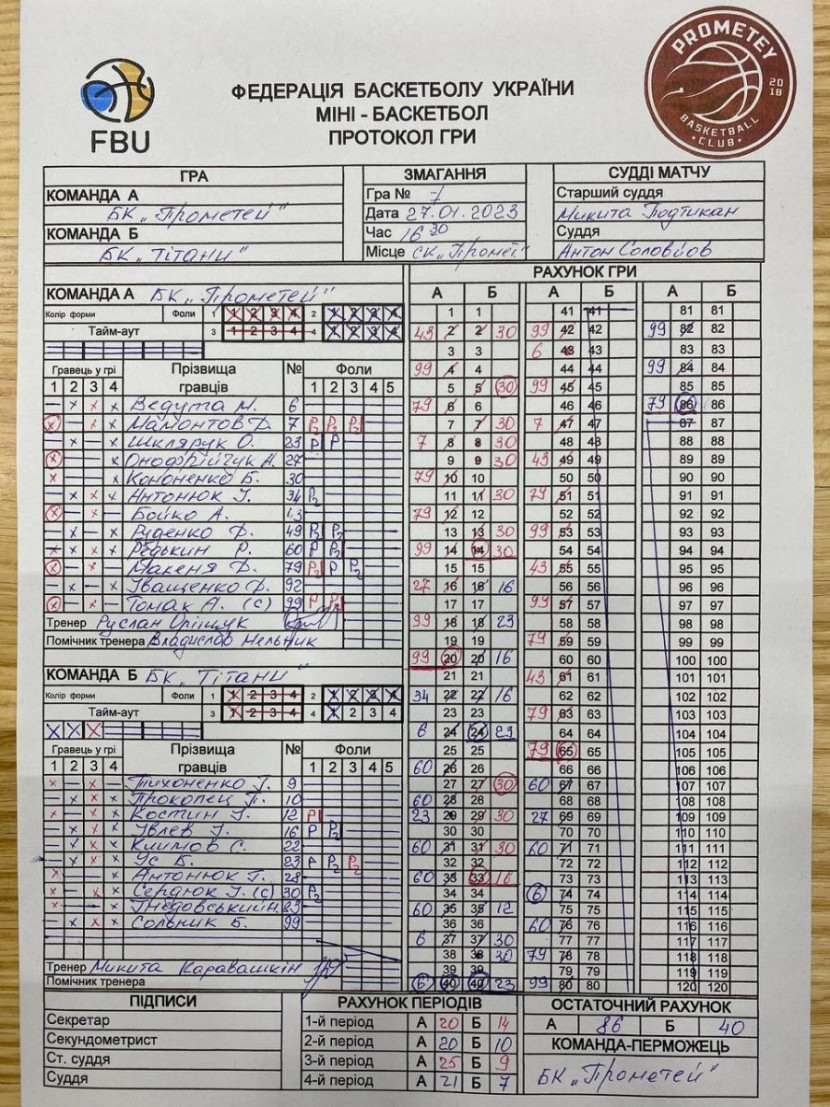 FBU
ФЕДЕРАЦІЯ БАСКЕТБОЛУ УКРАЇНИ
МІНІ - БАСКЕТБОЛ
ПРОТОКОЛ ГРИ
PROMETEY
2018
BASKETBALL
• CLUB •
ГРА
КОМАНДА А
БК „Прометей"
КОМАНДА Б
БК „Тітани"
ЗМАГАННЯ
Гра № 7
Дата 27.01.2023
Час 16 30
Місце СК „Промет
СУДДІ МАТЧУ
Старший суддя
Микита Подтикан
Суддя
Антон Соловйов
КОМАНДА А БК „Прометей"
Колір форми Фоли 1 1 2 3 4 2 1 2 3 4
Тайм-аут 3 1 2 3 4 4 1 2 3 4
Гравець у грі Прізвища гравців № Фоли
1 2 3 4 1 2 3 4 5
Ведута М. 6
Мамонтов Д. 7 P2 P2 P2
Шклярук О. 23 P P
Онофрійчук А. 27
Кононенко Б. 30
Антонюк І. 34 P2
Бойко А. 43
Руденко Ф. 49 P2 P2
Редькин Р. 60 P P2
Макеня Ф. 79 P2 P P2
Іващенко Ф. 92
Томак А. (с) 99 P P2
Тренер Руслан Оріщук
Помічник тренера Владислав Мельник
КОМАНДА Б БК „Тітани"
Колір форми Фоли 1 1 2 3 4 2 1 2 3 4
Тайм-аут 3 1 2 3 4 4 1 2 3 4
Гравець у грі Прізвища гравців № Фоли
1 2 3 4 1 2 3 4 5
Тихоненко Т. 9
Прокопец П. 10
Костин І. 12 P
Івлев І. 16 P P2
Климов С. 22
Ус Б. 23 P P2 P2
Антонюк Г. 28
Сердюк І. (с) 30 P2
Гнєдовський Н. 83
Сольник Б. 99
Тренер Микита Каравашкін
Помічник тренера
РАХУНОК ГРИ
А Б А Б А Б
1 1
43 2 2 30
3 3
99 4 4
5 5 30
79 6 6
7 7 30
7 8 8 30
9 9 30
79 10 10
11 11 30
79 12 12
13 13 30
99 14 14 30
15 15
27 16 16 16
17 17
99 18 18 23
19 19
99 20 20 16
21 21
34 22 22 16
23 23
6 24 24 23
25 25
60 26 26
27 27 30
60 28 28
23 29 29 30
30 30
60 31 31 30
32 32
60 33 33 16
34 34
60 35 35 12
36 36
6 37 37 30
38 38 30
39 39
6 40 40 23
41 41
99 42 42
6 43 43
44 44
99 45 45
46 46
7 47 47
48 48
43 49 49
50 50
79 51 51
52 52
99 53 53
54 54
43 55 55
56 56
99 57 57
58 58
79 59 59
60 60
43 61 61
62 62
79 63 63
64 64
79 65 65
66 66
60 67 67
68 68
27 69 69
70 70
60 71 71
72 72
73 73
6 74 74
75 75
60 76 76
77 77
79 78 78
79 79
99 80 80
81 81
99 82 82
83 83
99 84 84
85 85
79 86 86
87 87
88 88
89 89
90 90
91 91
92 92
93 93
94 94
95 95
96 96
97 97
98 98
99 99
100 100
101 101
102 102
103 103
104 104
105 105
106 106
107 107
108 108
109 109
110 110
111 111
112 112
113 113
114 114
115 115
116 116
117 117
118 118
119 119
120 120
ПІДПИСИ
Секретар
Секундометрист
Ст. суддя
Суддя
РАХУНОК ПЕРІОДІВ
1-й період А 20 Б 14
2-й період А 20 Б 10
3-й період А 25 Б 9
4-й період А 21 Б 7
ОСТАТОЧНИЙ РАХУНОК
А 86 Б 40
КОМАНДА-ПЕРМОЖЕЦЬ
БК „Прометей"